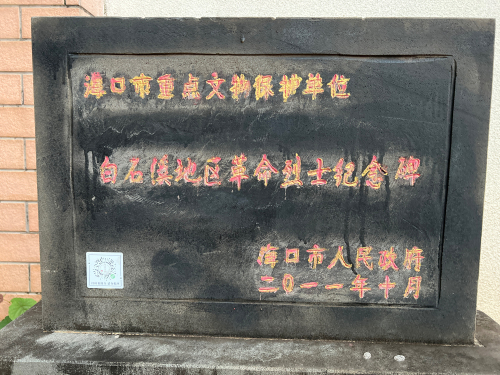 海口市重点文物保护单位
白石溪地区革命烈士纪念碑
海口市人民政府
二0一一年十月